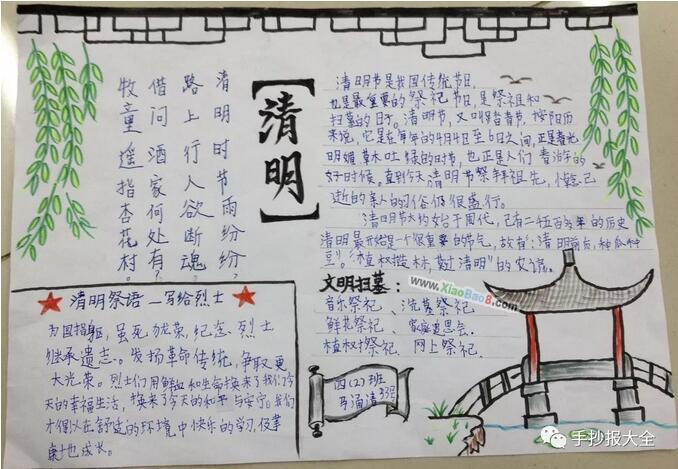 清明时节雨纷纷，
路上行人欲断魂。
借问酒家何处有？
牧童遥指杏花村。
【清明】
清明节是我国传统节日，
也是最重要的祭祀节日，是祭祖和
扫墓的日子。清明节，又叫踏青节，按阳历
来说，它是在每年的4月4日至6日之间，正是春光
明媚草木吐绿的时节，也正是人们春游的
好时候。直到今天清明节祭拜祖先，悼念已
逝的亲人的习俗仍很盛行。
清明节大约始于周代，已有二千五百多年的历史
清明最开始是一个很重要的节气，故有：清明前后，种瓜种
豆。"植树造林，莫过清明"的农谚。
文明扫墓：
音乐祭祀、洗墓祭祀
鲜花祭祀、家庭追思会
植树祭祀、网上祭祀
清明祭语—写给烈士
为国捐躯，虽死犹荣，纪念烈士
继承遗志。发扬革命传统，争取更
大光荣。烈士们用鲜血和生命换来了我们今
天的幸福生活，换来了今天的和平与安宁。我们
才得以在舒适的环境中快乐的学习，
成长。
四(2)班
33号
www.XiaoBao8.com
手抄报大全